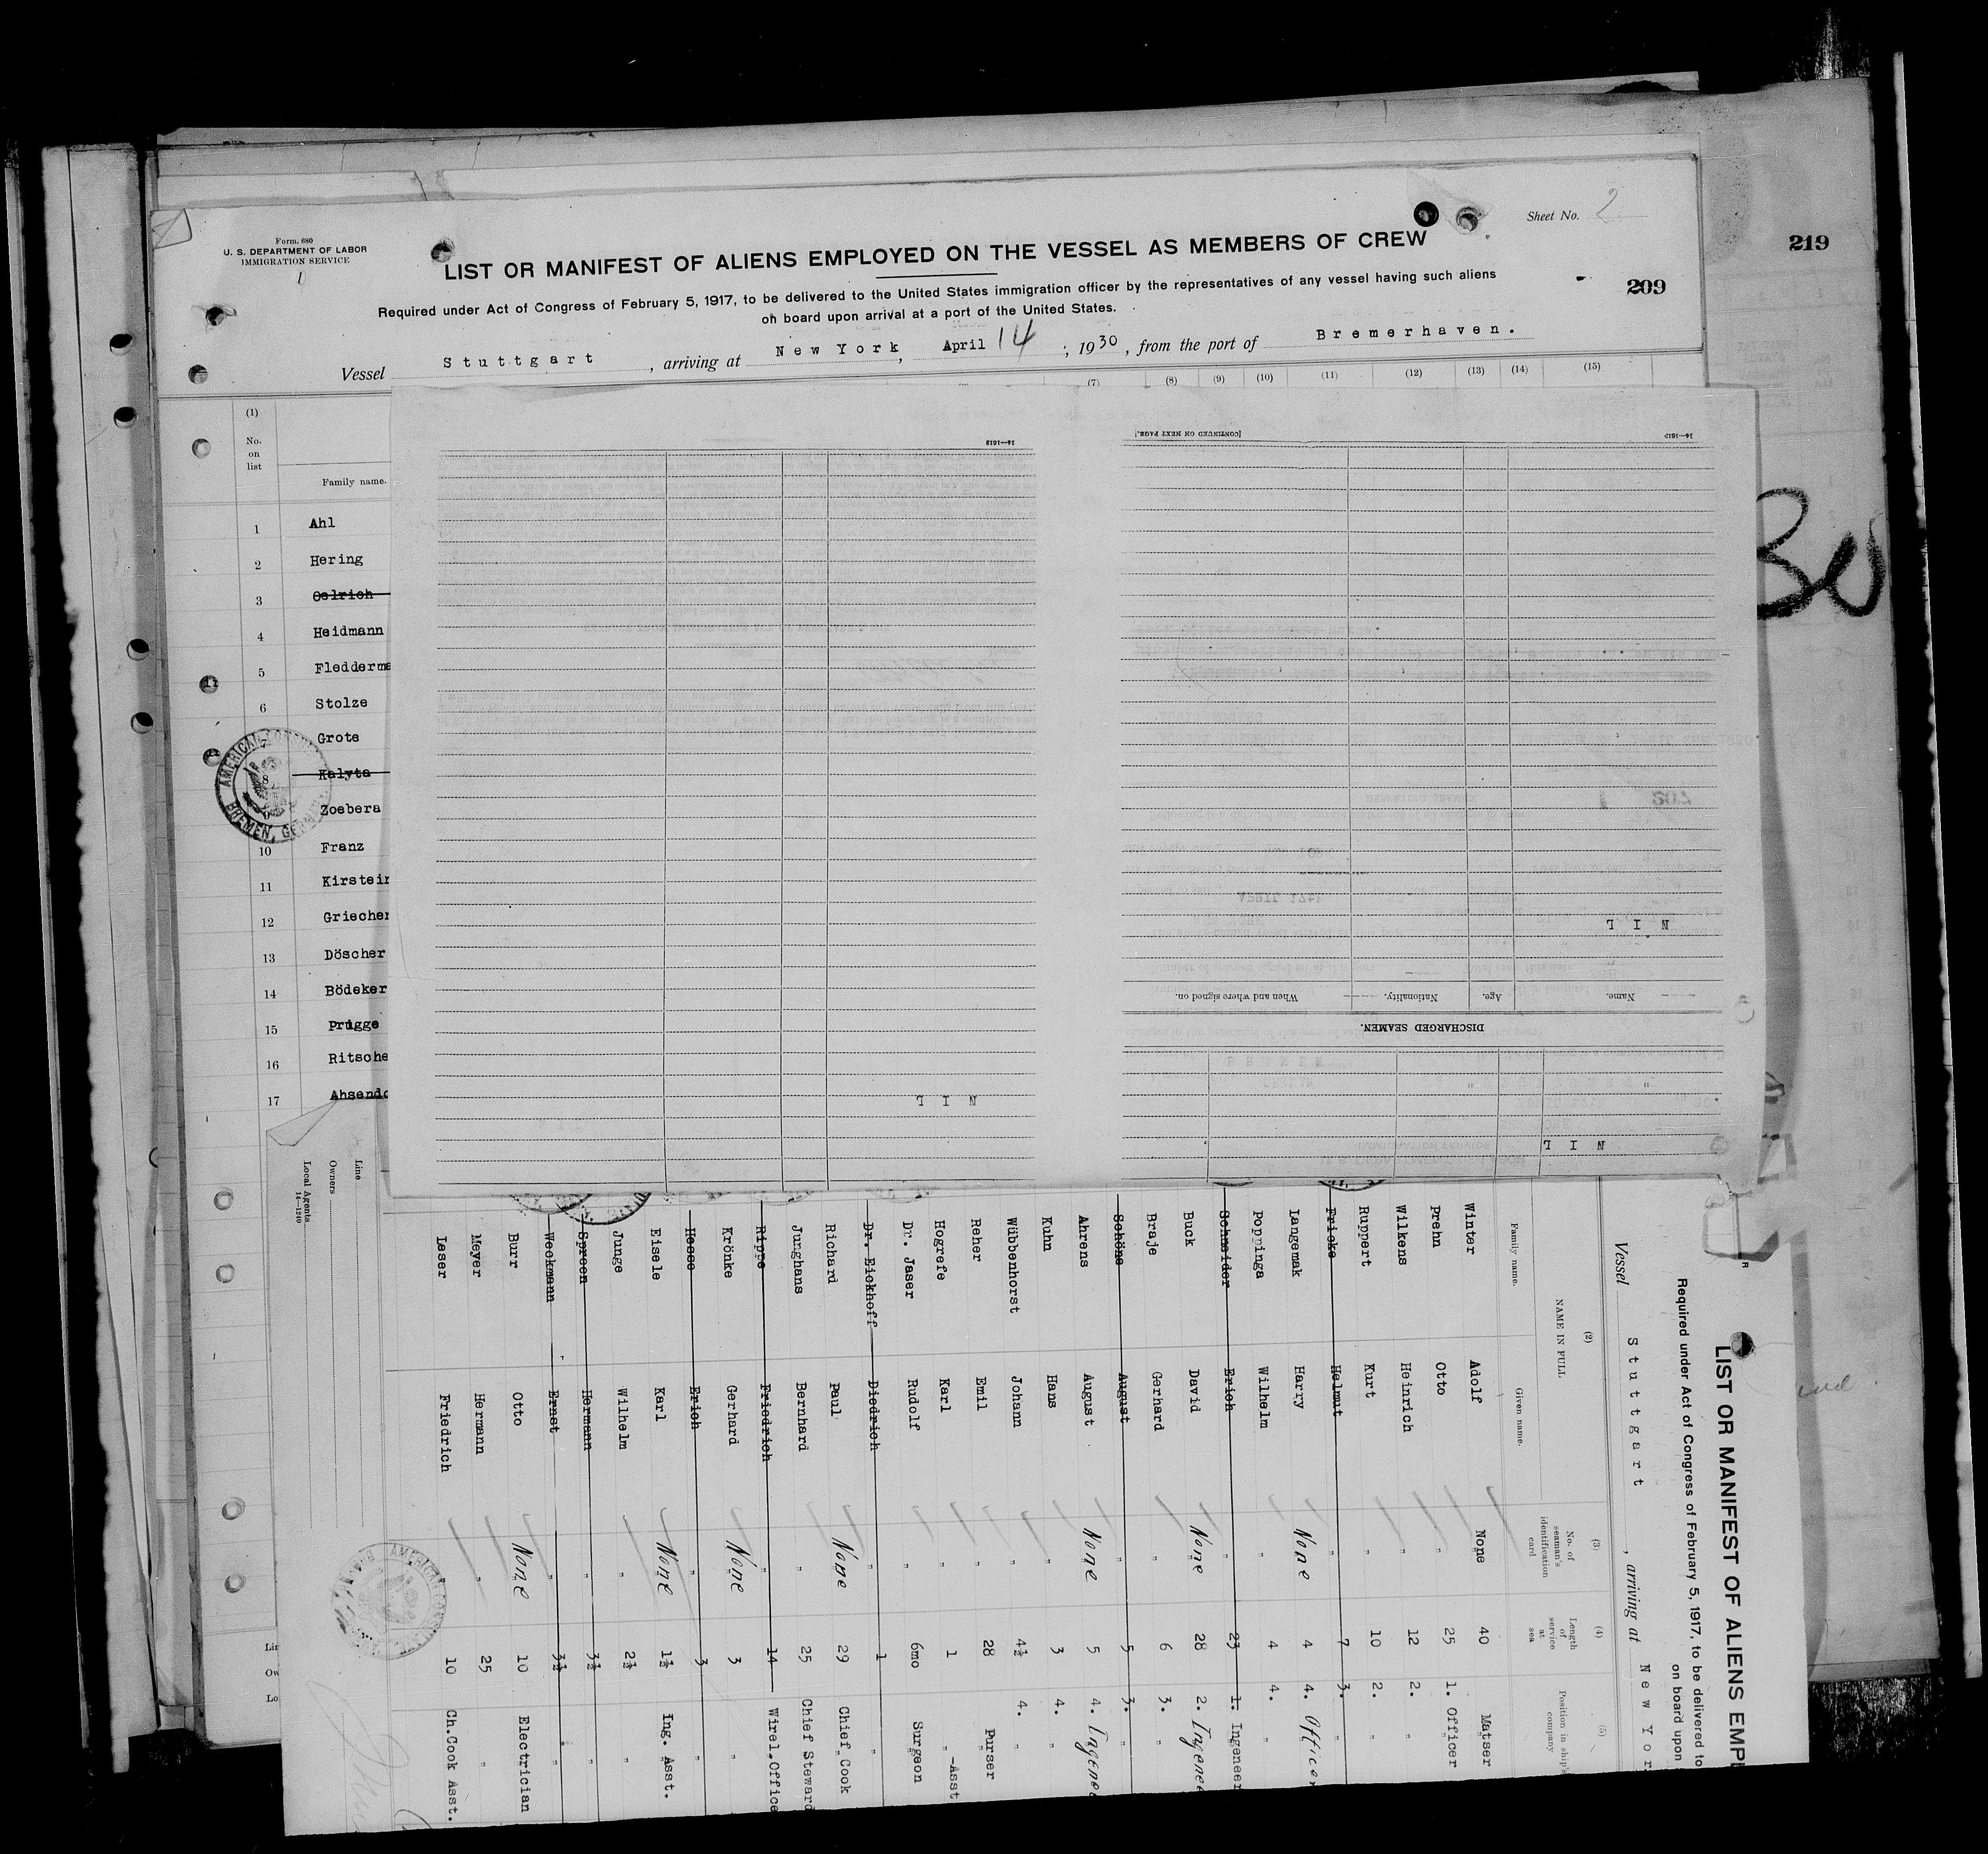 Form. 680
U. S. DEPARTMENT OF LABOR
IMMIGRATION SERVICE
Sheet No. 2
219
209
LIST OR MANIFEST OF ALIENS EMPLOYED ON THE VESSEL AS MEMBERS OF CREW
Required under Act of Congress of February 5, 1917, to be delivered to the United States immigration officer by the representatives of any vessel having such aliens
on board upon arrival at a port of the United States.
Vessel Stuttgart, arriving at New York, April 14, 1930, from the port of Bremerhaven.
(1) (7) (8) (9) (10) (11) (12) (13) (14) (15)
No. on list
Family name.
1 Ahl
2 Hering
3 Oelrich
4 Heidmann
5 Fledderma
6 Stolze
Grote
8 Kalyta
9 Zoebera
10 Franz
11 Kirstein
12 Griechen
13 Döscher
14 Bödeker
15 Prügge
16 Ritsche
17 Ahsendo
AMERICAN CONSU
BREMEN, GERMA
30
16—1613
[CONTINUED ON NEXT PAGE.]
NIL
NIL
Name. Age. Nationality. When and where signed on.
DISCHARGED SEAMEN.
NIL
LIST OR MANIFEST OF ALIENS EMP
Required under Act of Congress of February 5, 1917, to be delivered to
on board upon
Vessel Stuttgart, arriving at New Yor
(2) (3) (4) (5)
NAME IN FULL
Family name. Given name.
No. of seaman's identification card
Length of service at sea
Position in ship's company
Winter Adolf None 40 Matser
Prehn Otto " 25 1. Officer
Wilkens Heinrich " 12 2. "
Ruppert Kurt " 10 2. "
Fricke Helmut " 7 3. "
Langemak Harry None 4 4. Officer
Poppinga Wilhelm " 4 4. "
Schneider Erich " 23 1. Ingeneer
Buck David None 28 2. Ingenee
Braje Gerhard " 6 3. "
Schöne August " 5 3. "
Ahrens August None 5 4. Ingenee
Kuhn Hans " 3 4. "
Wübbenhorst Johann " 4½ 4. "
Reher Emil " 28 Purser
Hogrefe Karl " 1 " -Asst
Dr. Jaser Rudolf " 6mo Surgeon
Dr. Eickhoff Diedrich " 1 "
Richard Paul None 29 Chief Cook
Junghans Bernhard " 25 Chief Steward
Ripre Friedrich " 14 Wirel.Office
Krönke Gerhard None 3 "
Hesse Erich " 3 "
Eisele Karl None 1½ Ing. Asst.
Junge Wilhelm " 2½ "
Spreen Hermann " 3½ "
Weckmann Ernst " 3½ "
Burr Otto None 10 Electrician
Meyer Hermann " 25 "
Leser Friedrich 10 Ch.Cook Asst.
Line
Owners
Local Agents
14—1240
AMERICAN CONSU
Lin
Ow
Lo